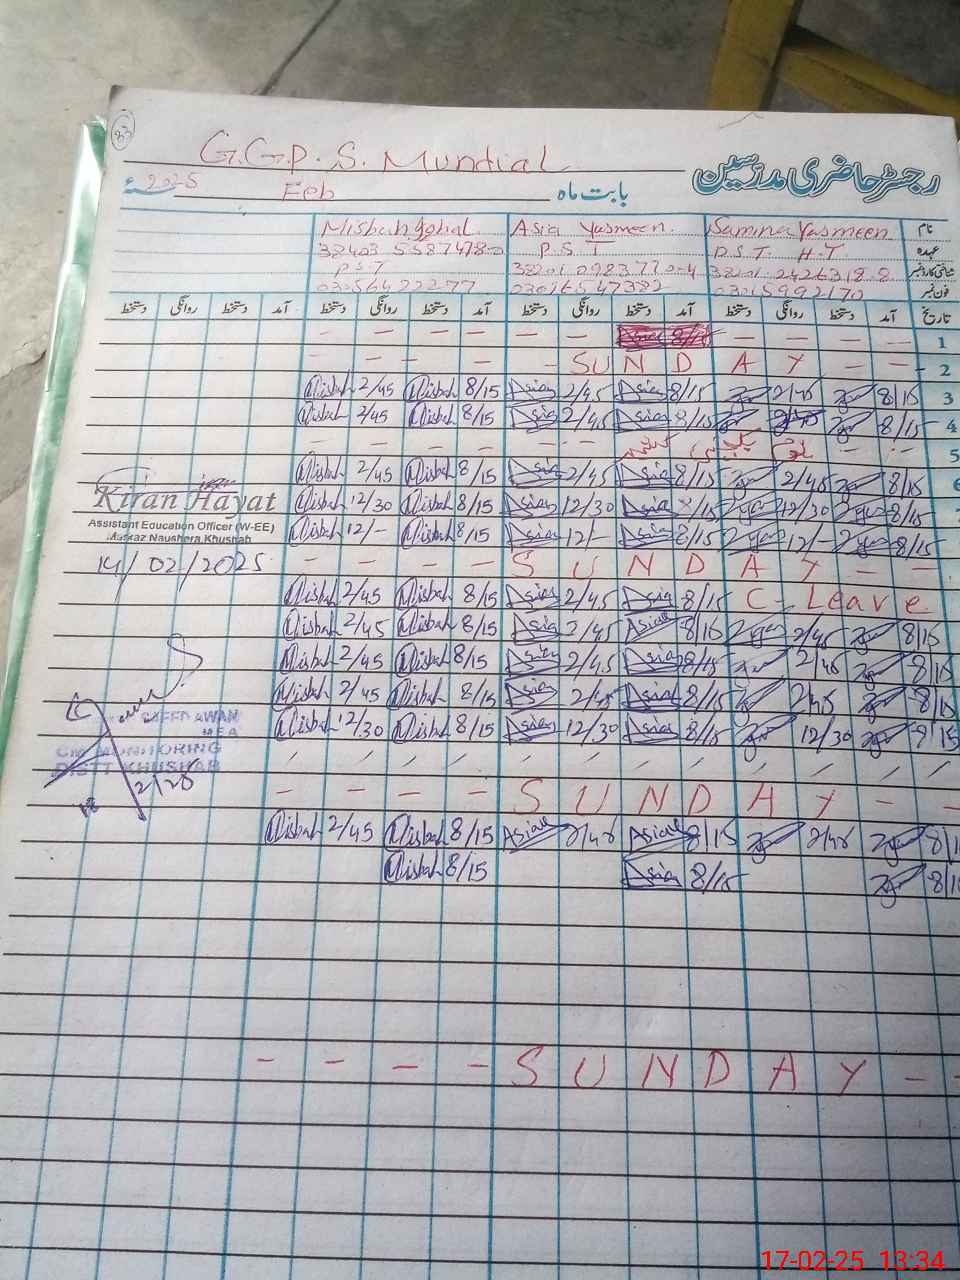 83
G.G.P.S. Mundial
رجسٹر حاضری مدرسین
2025 ء Feb بابت ماہ
Misbah Iqbal. Asia Yasmeen. Samina Yasmeen نام
P.S.T P.S.T P.S.T H.T عہدہ
شناختی کارڈ نمبر
فون نمبر
دستخط روانگی دستخط آمد دستخط روانگی دستخط آمد دستخط روانگی دستخط آمد دستخط روانگی دستخط آمد تاریخ
— — — — — — — — — — 1
— — — — — SUNDAY — — 2
Misbah 2/45 Misbah 8/15 Asia 2/45 Asia 8/15 2/45 8/15 3
Misbah 2/45 Misbah 8/15 Asia 2/45 Asia 8/15 8/15 4
یوم یکجہتی کشمیر 5
Misbah 2/45 Misbah 8/15 Asia 2/45 Asia 8/15 2/45 8/15 6
Misbah 12/30 Misbah 8/15 Asia 12/30 Asia 8/15 12/30 8/15 7
Misbah 12/— Misbah 8/15 Asia 12/— Asia 8/15 12/— 8/15
— — — — SUNDAY — —
Misbah 2/45 Misbah 8/15 Asia 2/45 Asia 8/15 C-Leave
Misbah 2/45 Misbah 8/15 Asia 2/45 Asia 8/15 2/45 8/15
Misbah 2/45 Misbah 8/15 Asia 2/45 Asia 8/15 2/45 8/15
Misbah 2/45 Misbah 8/15 Asia 2/45 Asia 8/15 2/45 8/15
Misbah 12/30 Misbah 8/15 Asia 12/30 Asia 8/15 12/30 8/15
/ / / / / / / / / / / /
— — — — SUNDAY — —
Misbah 2/45 Misbah 8/15 Asia 2/45 Asia 8/15 2/45
Misbah 8/15 Asia 8/15
— — — — SUNDAY — —
Kiran Hayat
Assistant Education Officer (W-EE)
Markaz Naushera, Khushab
14/02/2025
SAEED AWAN
MEA
CM MONITORING
DISTT KHUSHAB
17-02-25 13:34